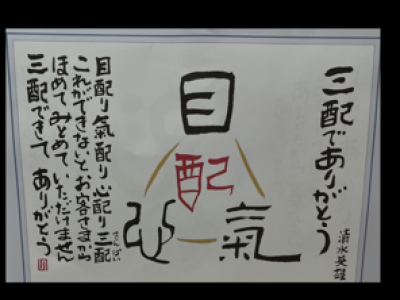 三配でありがとう
清水英雄
目
配
心
氣
目配り氣配り心配り三配
さんぱい
これができないとお客さまから
ほめてみとめていただけません
三配できて ありがとう